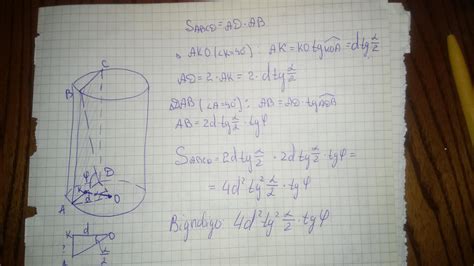 S_ABCD = AD · AB
△ AKO (∠K=90°): AK = KO·tg∠KOA = d tg α/2
AD = 2 · AK = 2 · d tg α/2
△DAB (∠A=90°): AB = AD · tg∠ADB
AB = 2d tg α/2 · tgφ
S_ABCD = 2d tg α/2 · 2d tg α/2 · tgφ =
= 4d² tg² α/2 · tgφ
Відповідь 4d² tg² α/2 · tgφ
C
B
φ
D
K
d
O
A
K d O
?
A α/2